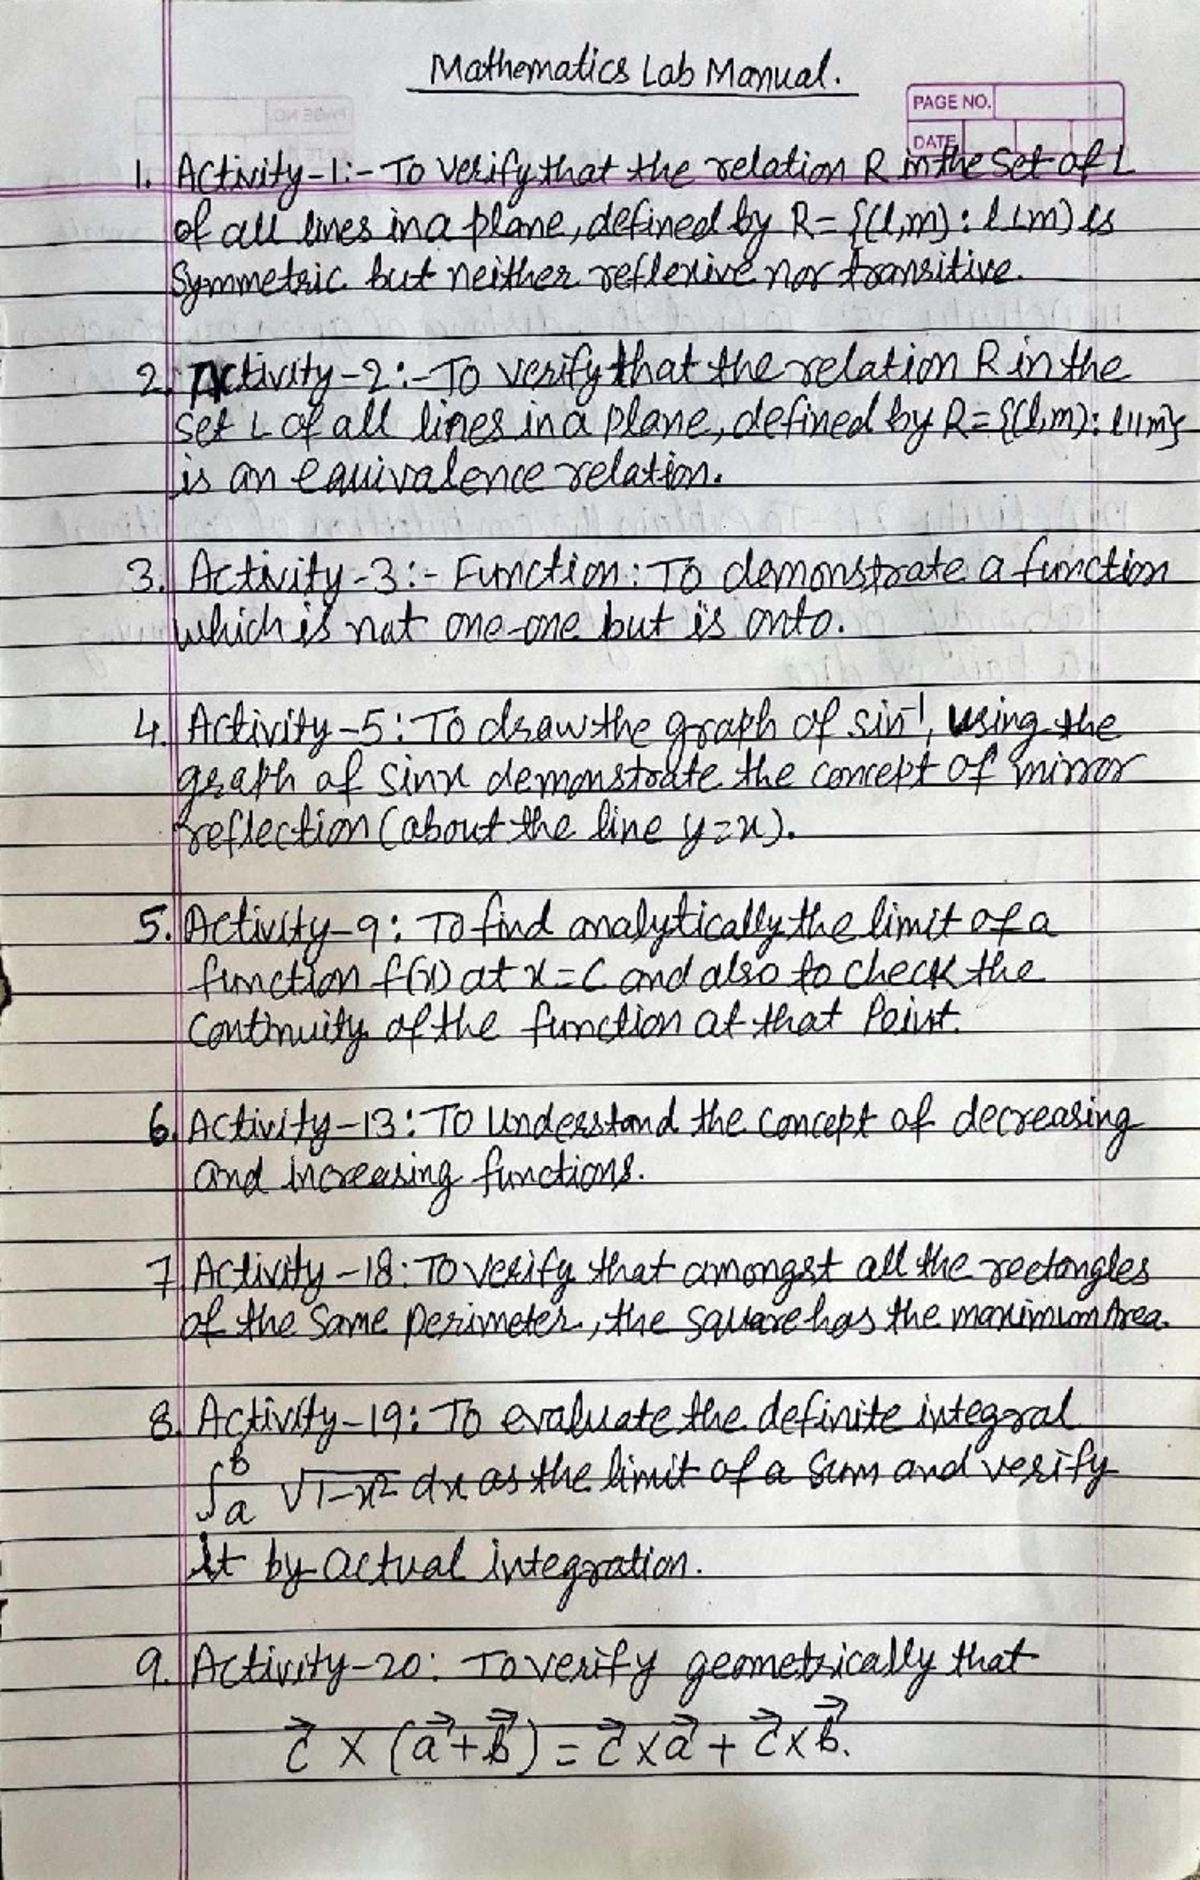 Mathematics Lab Manual.
PAGE NO.
DATE
1. Activity-1:- To verify that the relation R in the set of L
of all lines in a plane, defined by R={(l,m) : l⊥m) is
Symmetric but neither reflexive nor transitive.
2. Activity-2:- To verify that the relation R in the
set L of all lines in a plane, defined by R={(l,m): l||m}
is an equivalence relation.
3. Activity-3:- Function: To demonstrate a function
which is not one-one but is onto.
4. Activity-5: To draw the graph of sin⁻¹, using the
graph of sinx demonstrate the concept of mirror
reflection (about the line y=x).
5. Activity-9: To find analytically the limit of a
function f(x) at x=C and also to check the
Continuity of the function at that Point.
6. Activity-13: To Understand the concept of decreasing
and increasing functions.
7 Activity-18: To verify that amongst all the rectangles
of the same perimeter, the square has the maximum Area.
8. Activity-19: To evaluate the definite integral
∫ₐᵇ √1-x² dx as the limit of a Sum and verify
it by actual integration.
9. Activity-20: To verify geometrically that
c⃗ × (a⃗+b⃗) = c⃗×a⃗ + c⃗×b⃗.